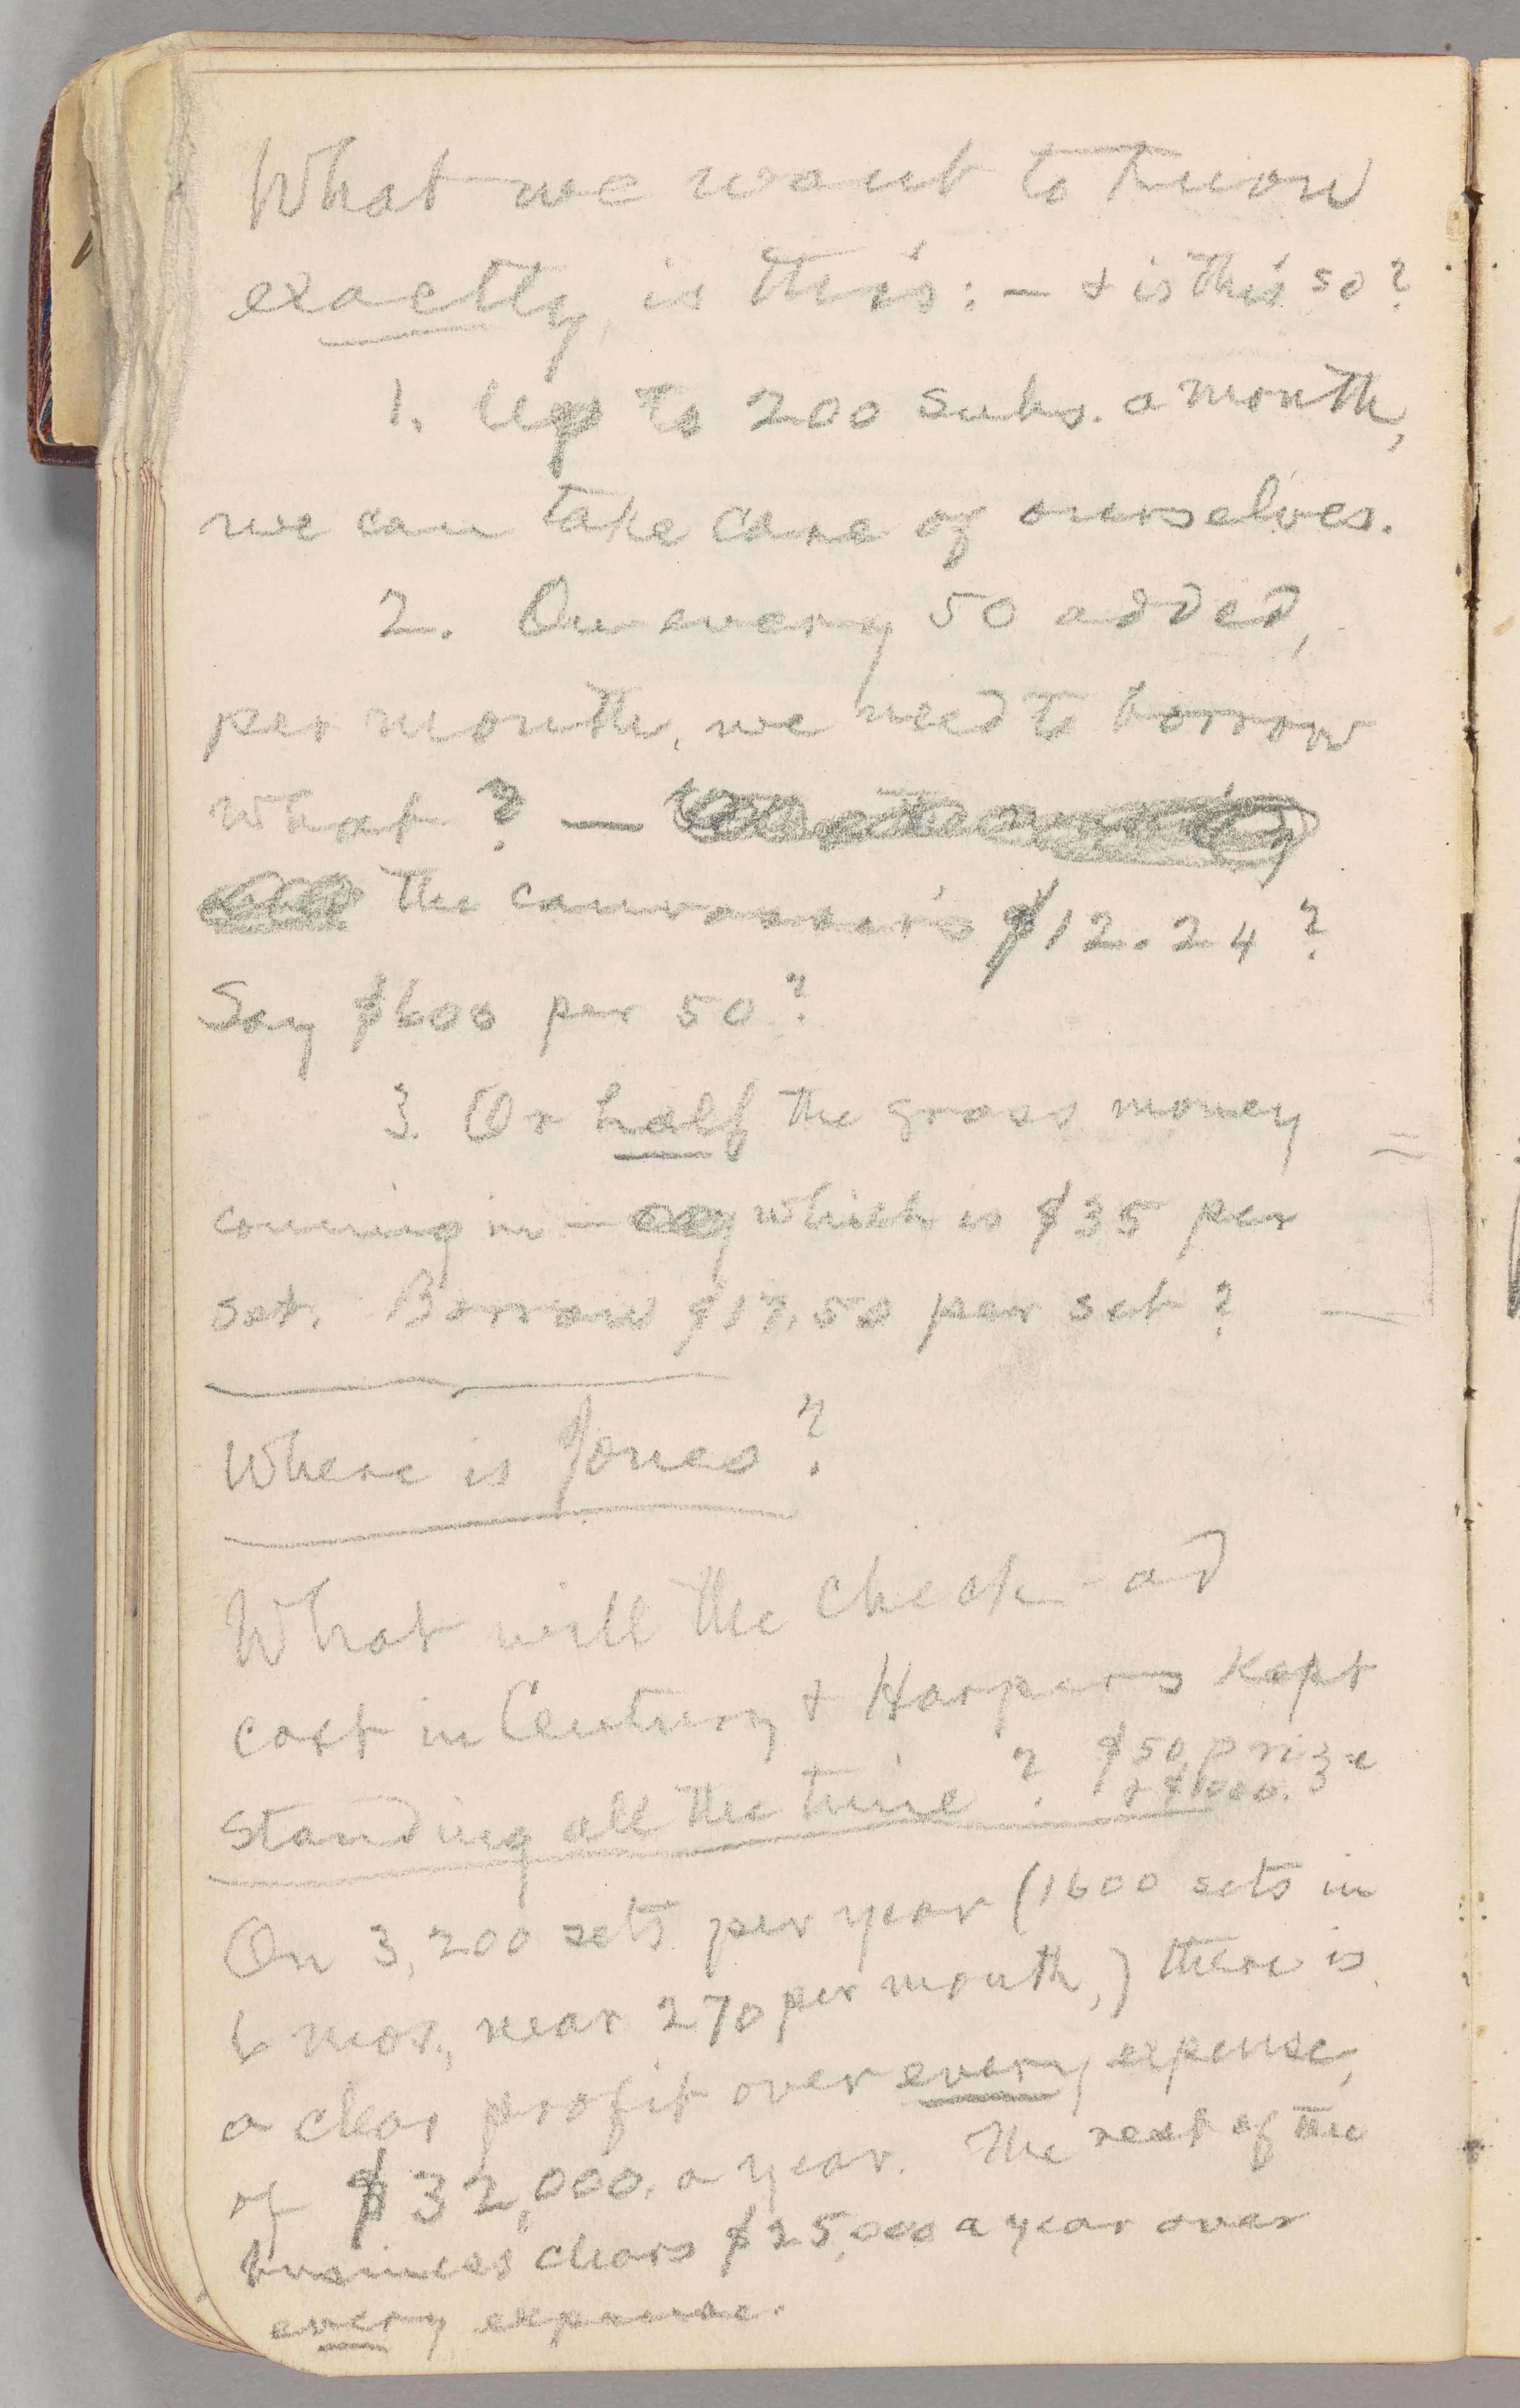 What we want to know
exactly, is this: — & is this so?
1. Up to 200 subs. a month,
we can take care of ourselves.
2. On every 50 added,
per month, we need to borrow
what? —
the canvasser's $12.24?
Say $600 per 50?
3. Or half the gross money
coming in — which is $35 per
set. Borrow $17.50 per set?
Where is Jones?
What will the check-ad
cost in Century & Harpers kept
standing all the time? $50 prize
& $1000.
On 3,200 sets per year (1600 sets in
6 mos., near 270 per month,) there is
a clear profit over every expense,
of $32,000. a year. The rest of the
business clears $25,000 a year over
every expense.